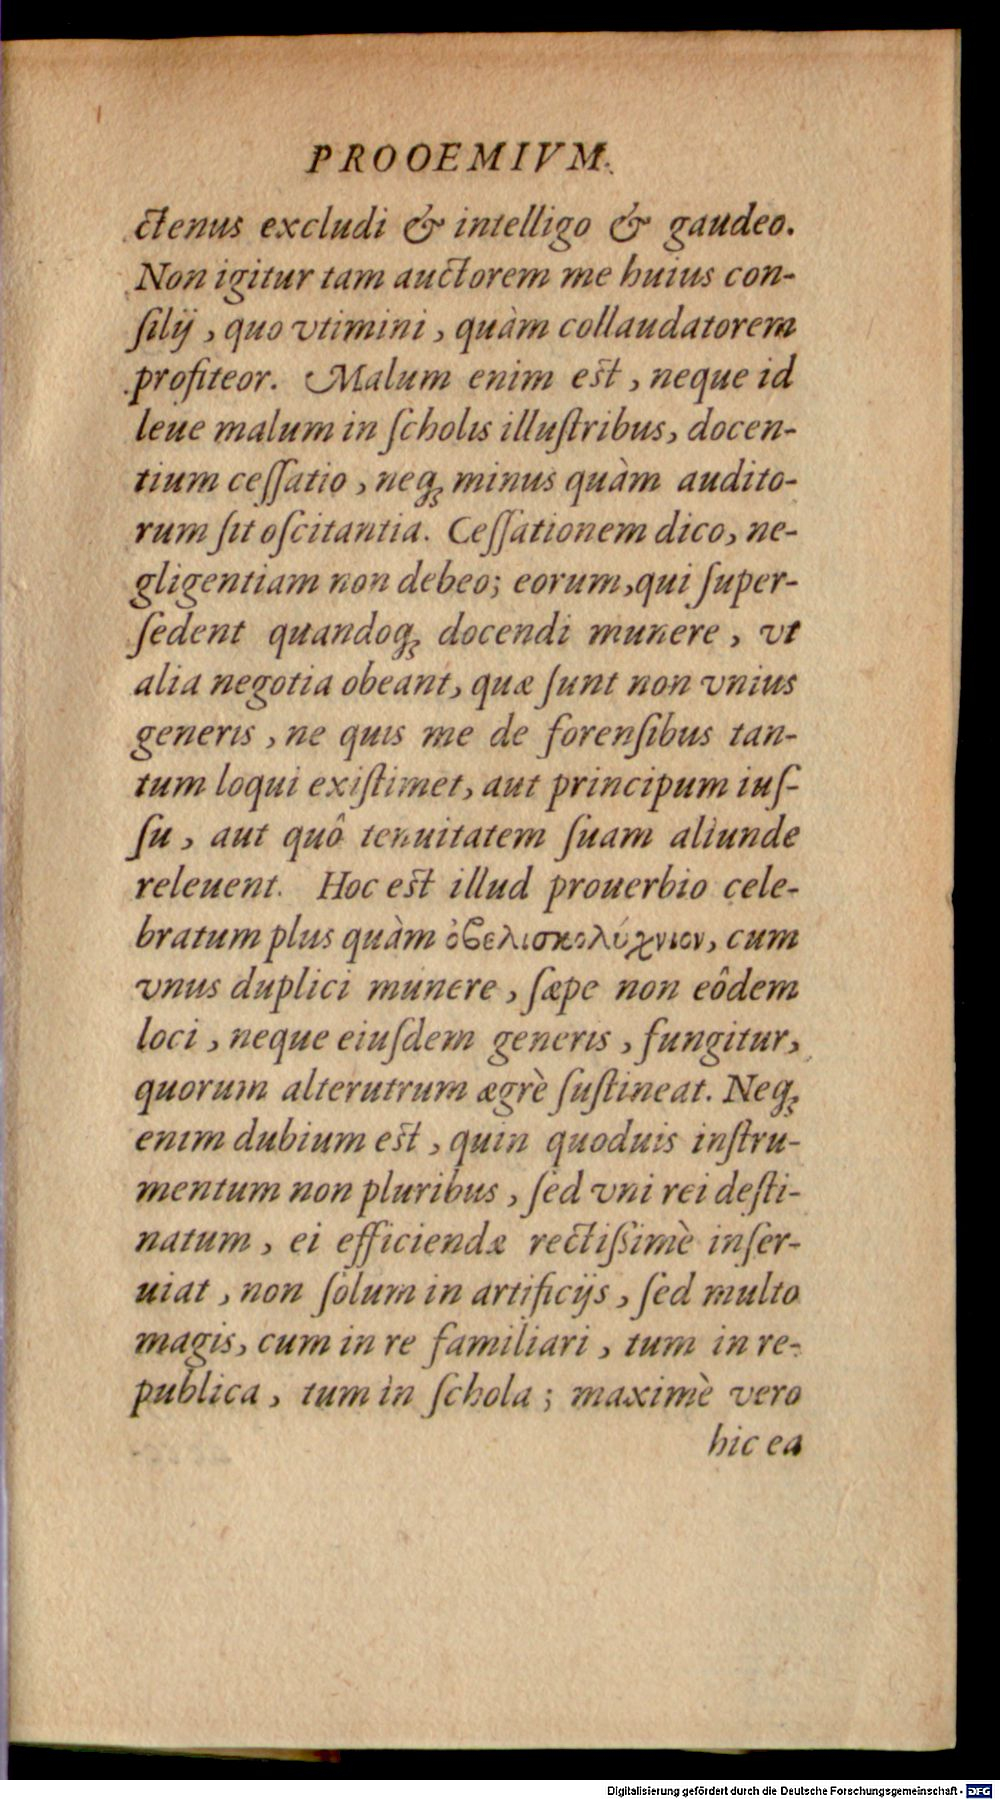 PROOEMIVM.
ctenus excludi & intelligo & gaudeo.
Non igitur tam auctorem me huius con-
ſilij, quo vtimini, quàm collaudatorem
profiteor. Malum enim est, neque id
leue malum in ſcholis illuſtribus, docen-
tium ceſſatio, neq́; minus quàm audito-
rum ſit oſcitantia. Ceſſationem dico, ne-
gligentiam non debeo; eorum, qui ſuper-
ſedent quandoq́; docendi munere, vt
alia negotia obeant, quæ ſunt non vnius
generis, ne quis me de forenſibus tan-
tum loqui exiſtimet, aut principum iuſ-
ſu, aut quô tenuitatem ſuam aliunde
releuent. Hoc est illud prouerbio cele-
bratum plus quàm ὀϐελισκολύχνιον, cum
vnus duplici munere, ſæpe non eôdem
loci, neque eiuſdem generis, fungitur,
quorum alterutrum ægrè ſuſtineat. Neq́;
enim dubium est, quin quoduis inſtru-
mentum non pluribus, ſed vni rei deſti-
natum, ei efficiendæ rectiſsimè inſer-
uiat, non ſolum in artificijs, ſed multo
magis, cum in re familiari, tum in re-
publica, tum in ſchola; maximè vero
hic ea
Digitalisierung gefördert durch die Deutsche Forschungsgemeinschaft - DFG